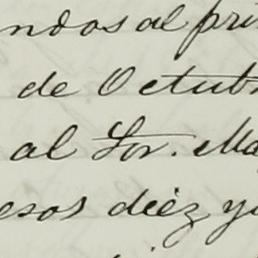 ndos al pri
de Octub
al Sor. Ma
esos diéz y